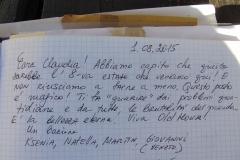 1.08.2015
Cara Claudia! Abbiamo capito che questa
sarebbe l'8-va estate che veniamo qui! E
non riusciamo a farne a meno. Questo posto
è magico! Ti "guarisce" dai problemi quo-
tidiani e da tutte le
E' la bellezza eterna. Viva Old House!
Un bacino
KSENIA, NATELLA, MARTIN, GIOVANNI
(VENETO)